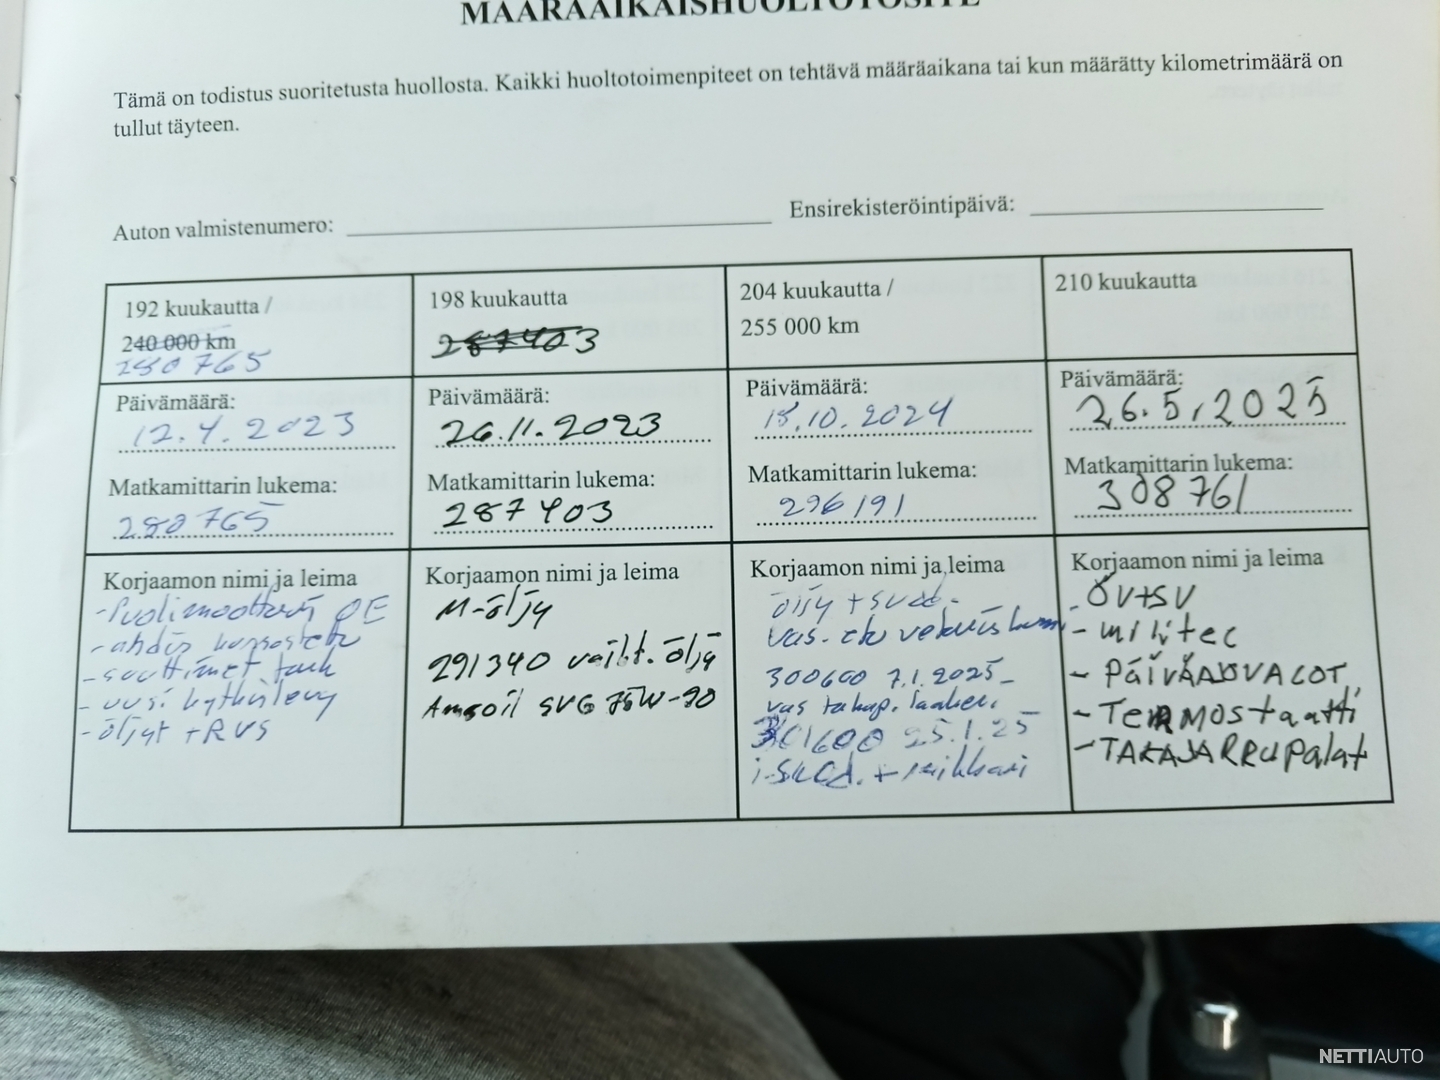 MÄÄRÄAIKAISHUOLTOTOSITE
Tämä on todistus suoritetusta huollosta. Kaikki huoltotoimenpiteet on tehtävä määräaikana tai kun määrätty kilometrimäärä on
tullut täyteen.
Auton valmistenumero:
Ensirekisteröintipäivä:
192 kuukautta /
240 000 km
280765
Päivämäärä:
12.4.2023
Matkamittarin lukema:
280765
Korjaamon nimi ja leima
- Puolimoottori OE
- ahdin
- suuttimet tark
- uusi kytkinlevy
- öljyt + RVS
198 kuukautta
287403
Päivämäärä:
26.11.2023
Matkamittarin lukema:
287403
Korjaamon nimi ja leima
M-öljy
291340 vaiht. öljy
Amsoil SVG 75W-90
204 kuukautta /
255 000 km
Päivämäärä:
18.10.2024
Matkamittarin lukema:
296191
Korjaamon nimi ja leima
öljy + suod.
vas. etu
300600 7.1.2025
vas takap. laaker.
301600 25.1.25
i-suod. +
210 kuukautta
Päivämäärä:
26.5.2025
Matkamittarin lukema:
308761
Korjaamon nimi ja leima
ÖV+SV
- militec
- PÄIVÄNOVALOT,
- TERMOstaatti
- TAKAJARRUpalat
NETTIAUTO